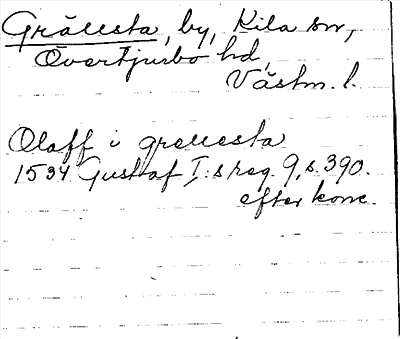 Grällsta, by, Kila sn,
Övertjurbo hd,
Västm. l.
Olaff i grellesta
1534 Gustaf I:s reg. 9, s. 390.
efter konc.